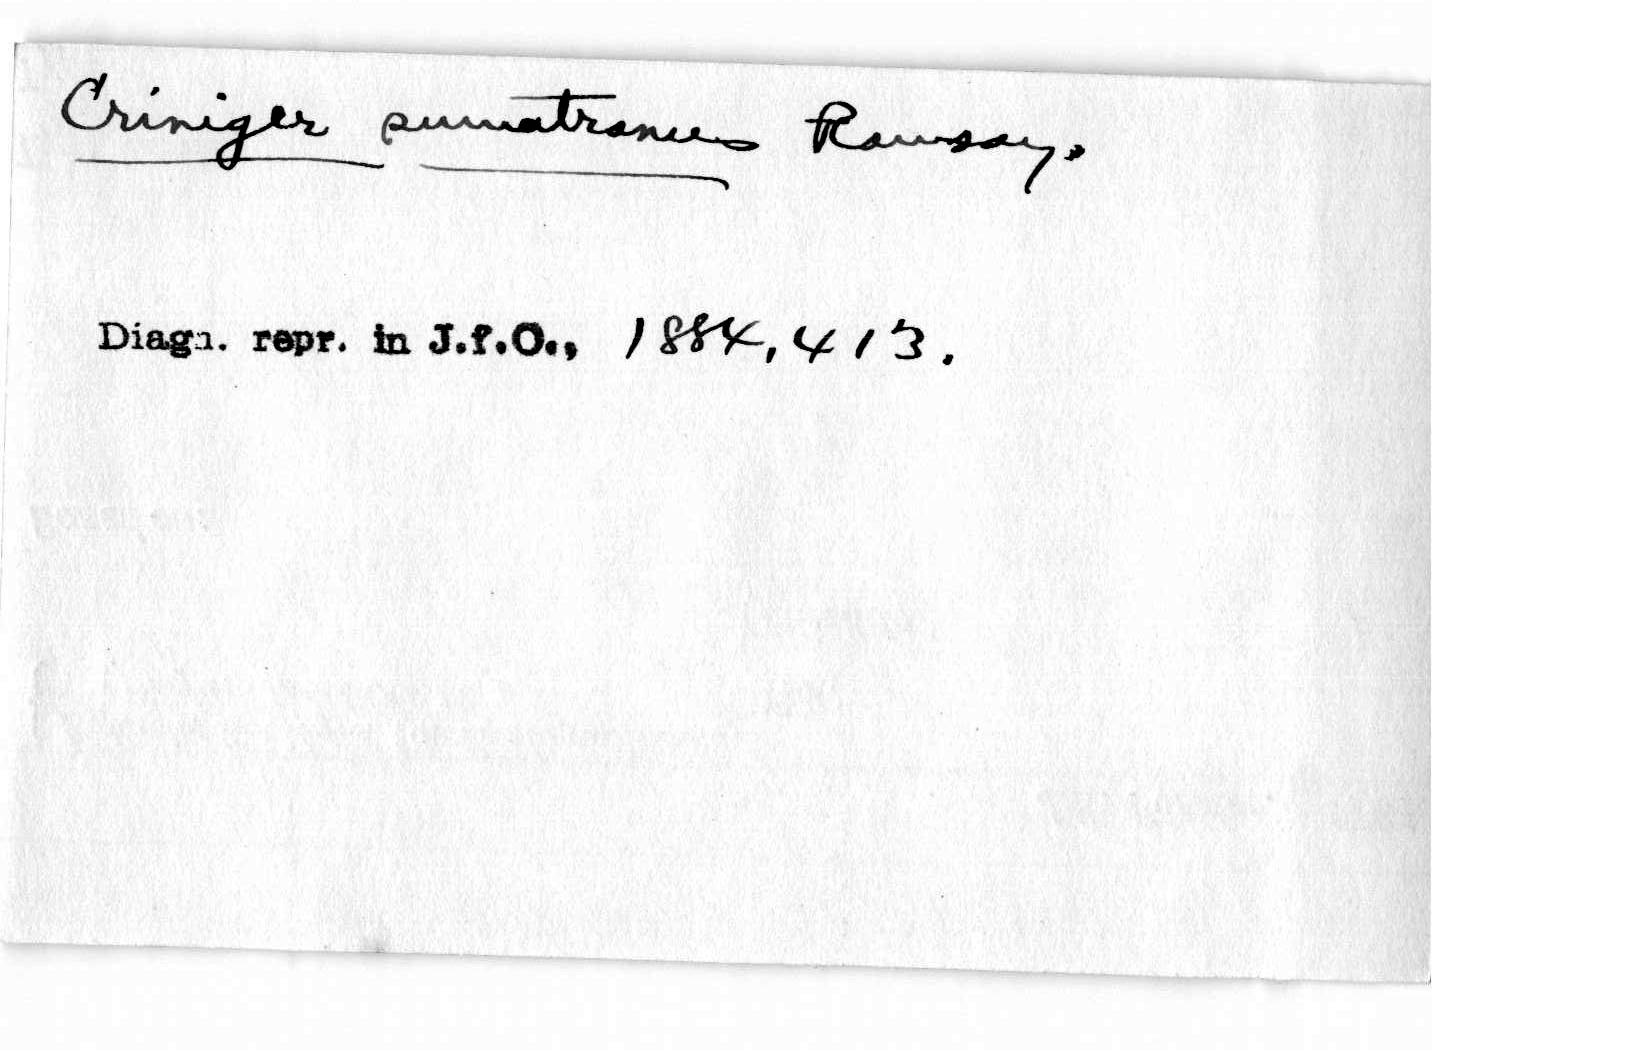 Criniger sumatranus Ramsay.
Diagn. repr. in J.f.O., 1884, 413.